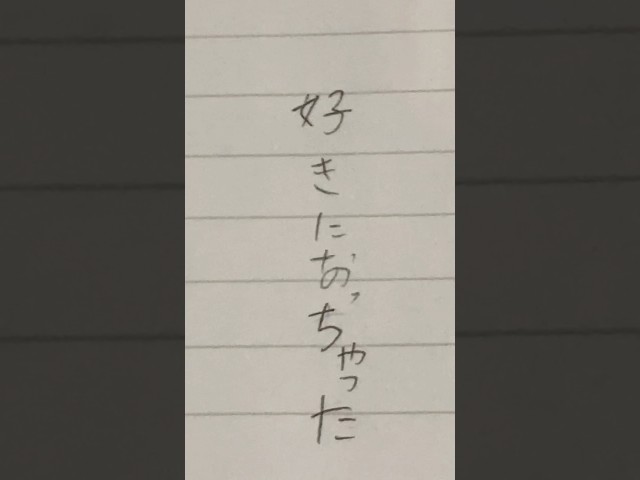 好きになっちゃった